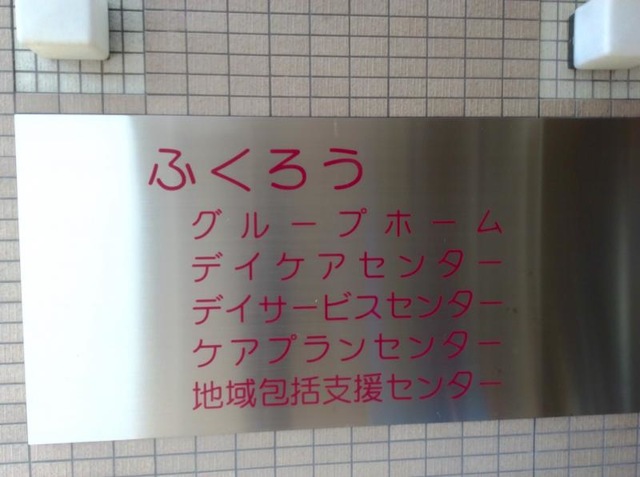 ふくろう
グループホーム
デイケアセンター
デイサービスセンター
ケアプランセンター
地域包括支援センター